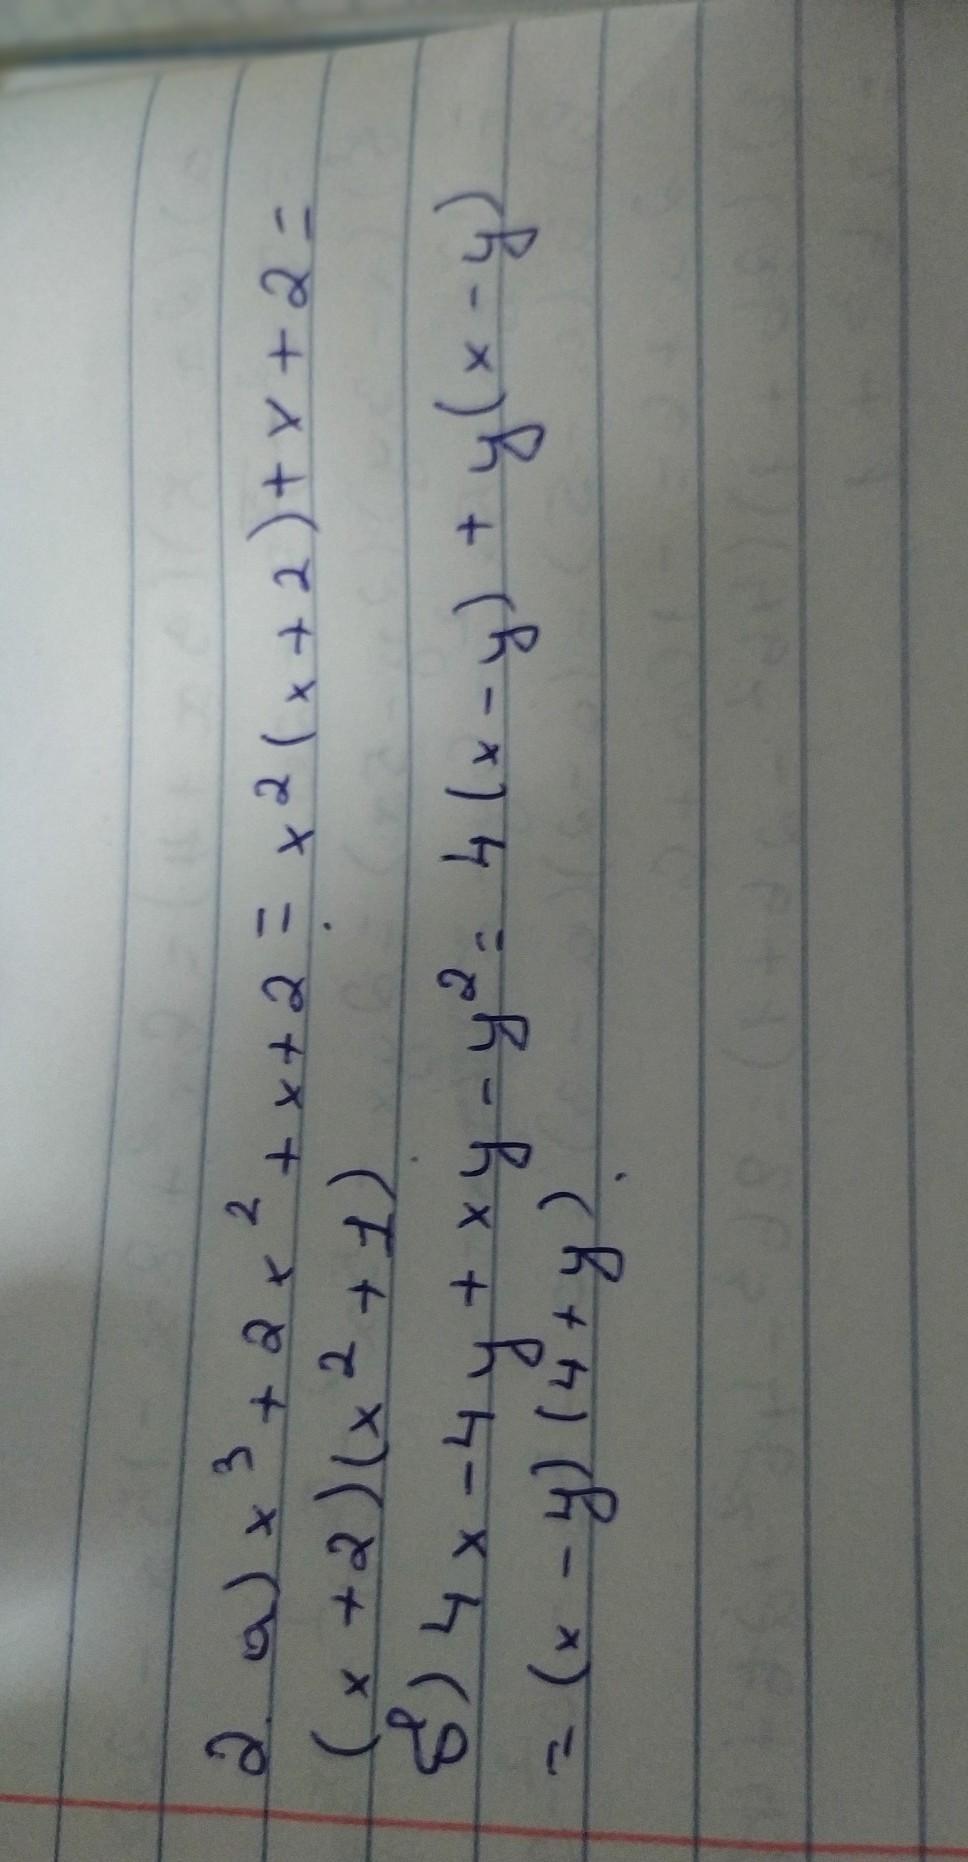 2. а) x³ + 2x² + x + 2 = x²(x + 2) + x + 2 =
(x + 2)(x² + 1)
б) 4x - 4y + xy - y² = 4(x - y) + y(x - y)
= (x - y)(4 + y)